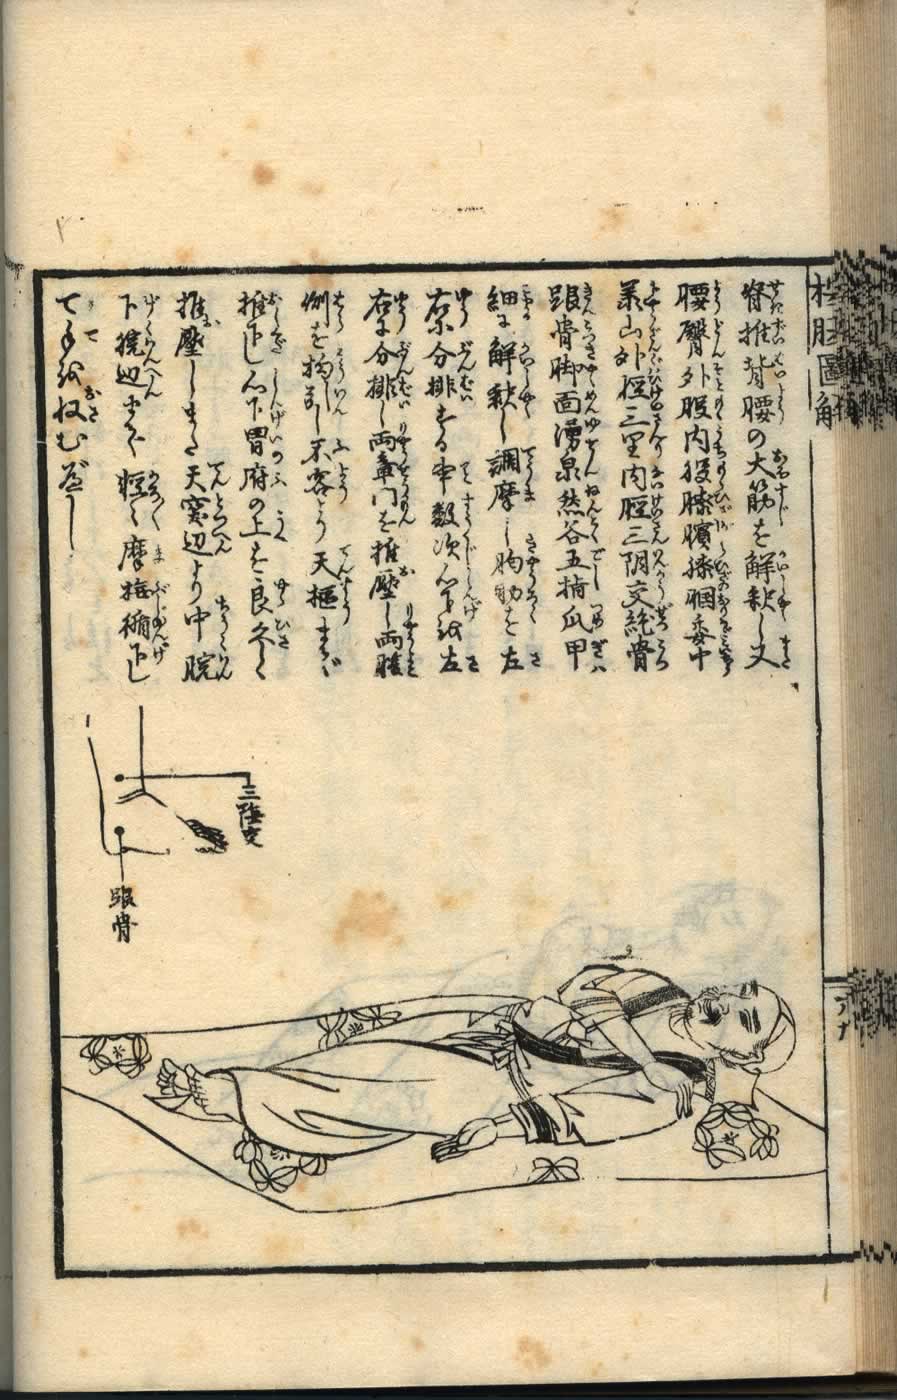 按腹圖解
脊椎背腰の大筋を解釈し又
腰臀外股内股膝臏膝膕委中
承山外脛三里内脛三阴交絶骨
跟骨脚面湧泉然谷五指爪甲
細に解釈し調摩し胸肋を左
右に分排する事数次心下を左
右に分排し両章門を推壓し両腹
側を拘引し不容より天樞まで
推下し心下胃府の上を良久く
推壓しまた天突辺より中脘
下脘辺まで軽く摩揺循下し
て手を収むべし
三陰交
跟骨